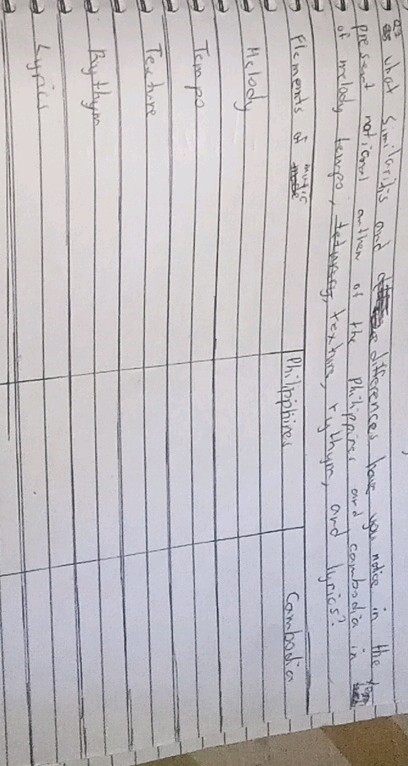 what similaritis and differences have you notice in the
present national anthem of the Philippines and cambodia in
of melody, tempo, texture, rythym, and lyrics?
Elements of music Philipphires Cambodia
Melody
Tempo
Texture
Rythym
Lyrics